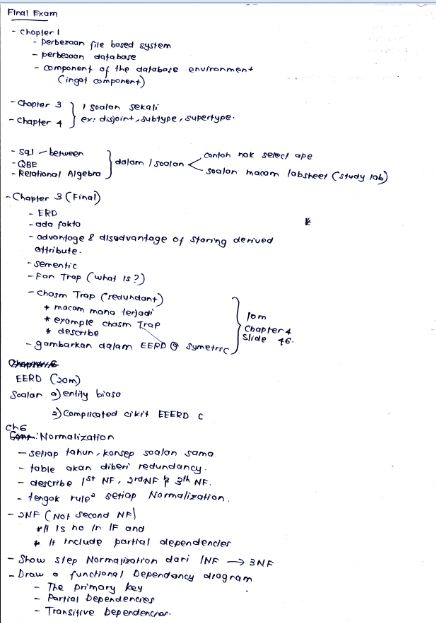 Final Exam
- Chapter 1
- perbezaan file based system
- perbezaan database
- component of the database environment
(ingat component)
- Chapter 3
- Chapter 4
1 soalan sekali
ex: disjoint, subtype, supertype.
- Sql - between
- QBE
- Relational Algebra
dalam 1 soalan
contoh nak select ape
soalan macam labsheet (study lab)
- Chapter 3 (Final)
- ERD
- ada fakta
- advantage & disadvantage of storing derived
attribute.
- sementic
- Fan Trap (what is?)
- Chasm Trap (redundant)
* macam mana terjadi
* example chasm trap
* describe
- gambarkan dalam EERD @ symetric
10m
Chapter 4
Slide 46.
EERD (20m)
Soalan a) entity biasa
2) Complicated cikit EEERD C
Ch6
Normalization
- setiap tahun, konsep soalan sama
- table akan diberi redundancy.
- describe 1st NF, 2nd NF & 3th NF.
- tengok rule² setiap Normalization.
- 2NF (Not second NF)
* It is no in 1F and
* It include partial dependencies
- Show step Normalization dari 1NF → 3NF
- Draw a functional Dependancy diagram
- The primary key
- Partial Dependencies
- Transitive Dependencies.